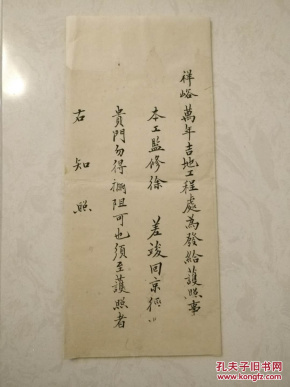 祥峪萬年吉地工程處為發給護照事
本工監修徐 差竣回京經
貴門勿得攔阻可也須至護照者
右知照
孔夫子旧书网